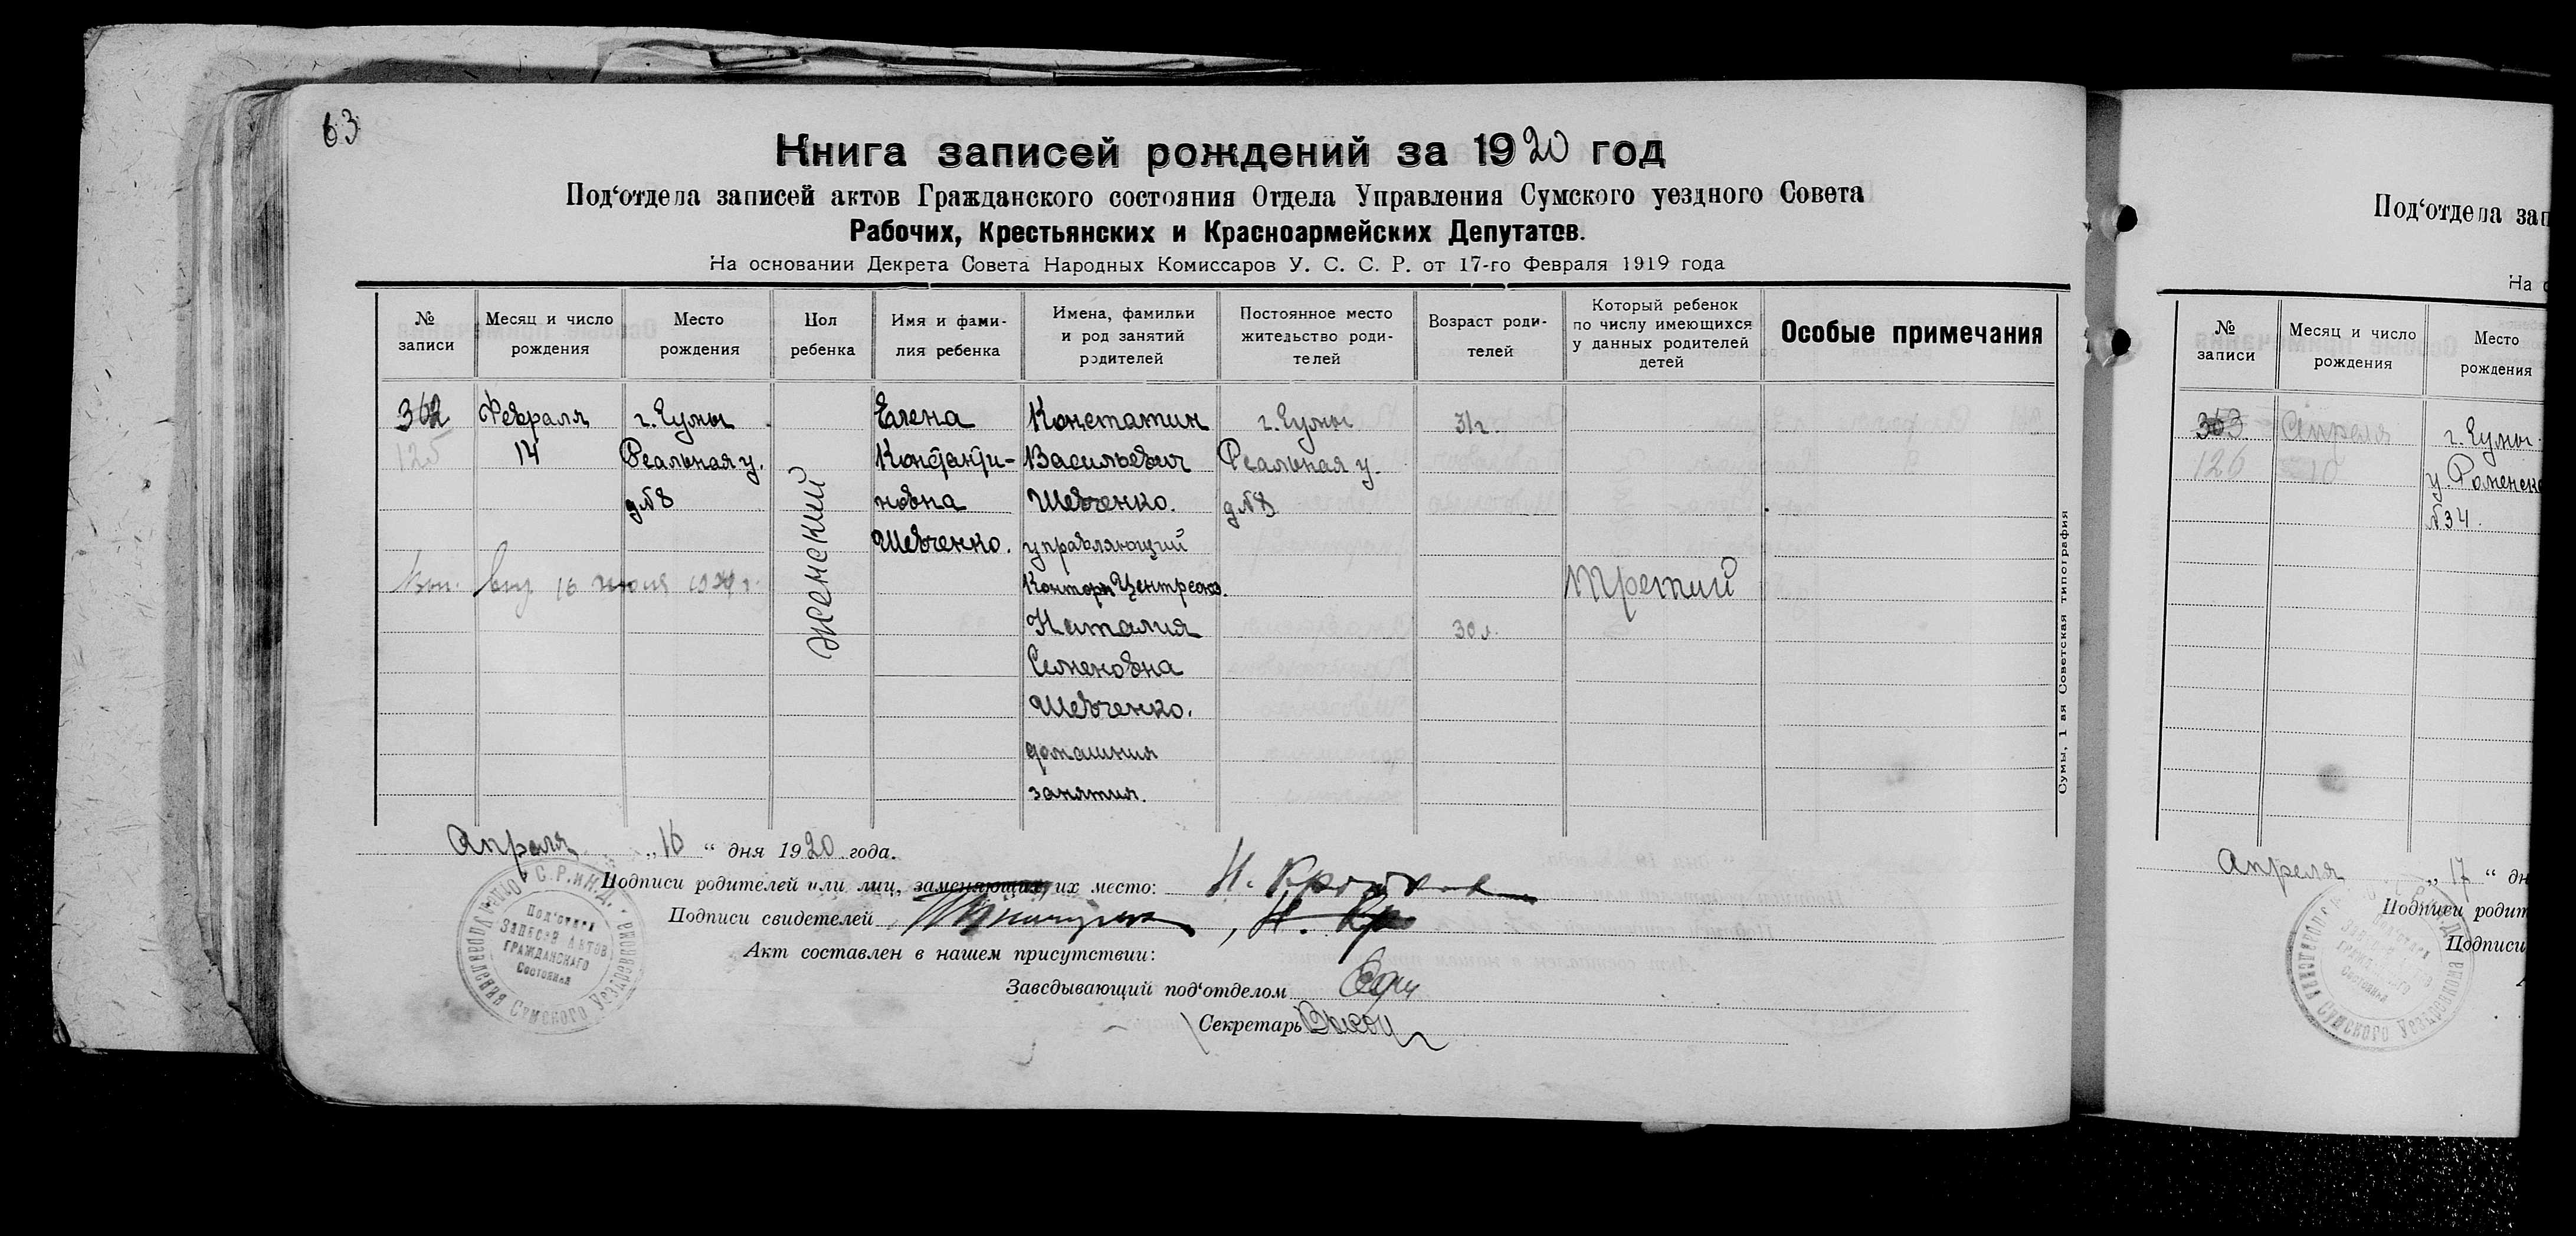 63
Книга записей рождений за 1920 год
Под‘отдела записей актов Гражданского состояния Отдела Управления Сумского уездного Совета
Рабочих, Крестьянских и Красноармейских Депутатов.
На основании Декрета Совета Народных Комиссаров У. С. С. Р. от 17-го Февраля 1919 года
№ записи
Месяц и число рождения
Место рождения
Пол ребенка
Имя и фами-
лия ребенка
Имена, фамилии
и род занятий
родителей
Постоянное место
жительство роди-
телей
Возраст роди-
телей
Который ребенок
по числу имеющихся
у данных родителей
детей
Особые примечания
362
125
Февраля
14
г. Сумы
Реальная у.
д №8
женский
Елена
Константи-
новна
Шевченко.
Констатин
Васильевич
Шевченко.
управляющий
Конторы Центрсоюз.
Наталия
Семеновна
Шевченко.
домашния
занятия.
г. Сумы
Реальная у.
д №8
31 г.
30 л.
Третий
16 июля
Сумы, 1 ая Советская типография
Апреля „16“ дня 1920 года.
Подписи родителей или лиц, заменяющих их место:
Подписи свидетелей
Акт составлен в нашем присутствии:
Заведывающий под‘отделом
Секретарь
Под‘отдел
Записей Актов
Гражданскаго
Состояния
Под‘отдела зап
На о
№ записи
Месяц и число рождения
Место рождения
363
126
Апреля
10
г. Сумы
у. Роменск
№34.
Апреля „17“ дн
Подписи родит
Подписи